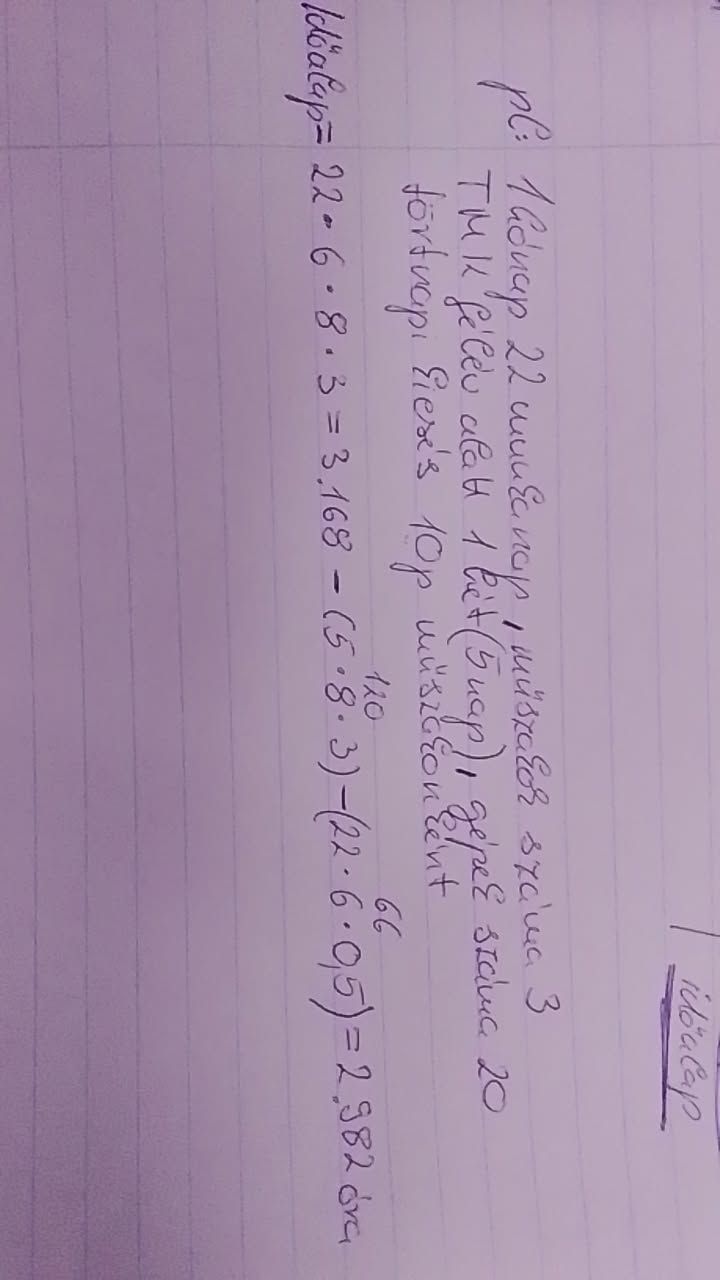 időalap
pl: 1 hónap 22 munkanap, műszakok száma 3
TMK félév alatt 1 hét (5 nap), gépek száma 20
törtnapi kiesés 10p műszakonként
120 66
Időalap = 22 · 6 · 8 · 3 = 3.168 - (5 · 8 · 3) - (22 · 6 · 0,5) = 2.982 óra